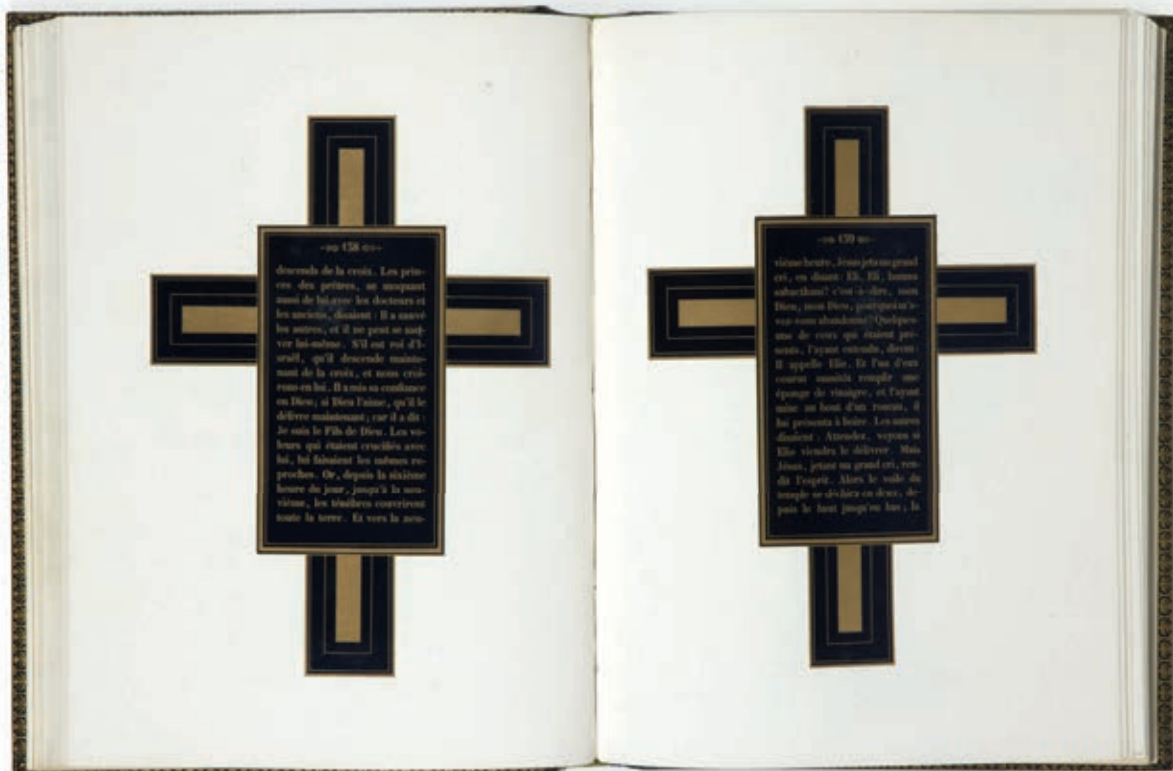 138
descends de la croix. Les prin-
ces des prêtres, se moquant
aussi de lui avec les docteurs et
les anciens, disaient : Il a sauvé
les autres, et il ne peut se sau-
ver lui-même. S'il est roi d'I-
sraël, qu'il descende mainte-
nant de la croix, et nous croi-
rons en lui. Il a mis sa confiance
en Dieu; si Dieu l'aime, qu'il le
délivre maintenant; car il a dit :
Je suis le Fils de Dieu. Les vo-
leurs qui étaient crucifiés avec
lui, lui faisaient les mêmes re-
proches. Or, depuis la sixième
heure du jour, jusqu'à la neu-
vième, les ténèbres couvrirent
toute la terre. Et vers la neu-
139
vième heure, Jésus jeta un grand
cri, en disant: Eli, Eli, lamma
sabacthani? c'est-à-dire, mon
Dieu, mon Dieu, pourquoi m'a-
vez-vous abandonné? Quelques-
uns de ceux qui étaient pré-
sents, l'ayant entendu, dirent :
Il appelle Elie. Et l'un d'eux
courut aussitôt remplir une
éponge de vinaigre, et l'ayant
mise au bout d'un roseau, il
lui présenta à boire. Les autres
disaient : Attendez, voyons si
Elie viendra le délivrer. Mais
Jésus, jetant un grand cri, ren-
dit l'esprit. Alors le voile du
temple se déchira en deux, de-
puis le haut jusqu'en bas; la